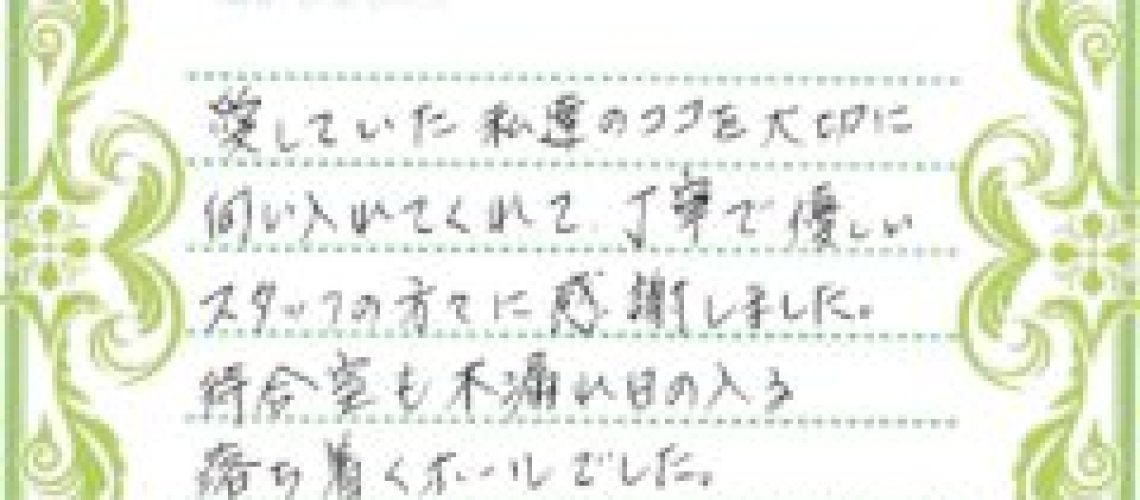 愛していた私達のココを大切に
伺い入れてくれて、丁寧で優しい
スタッフの方々に感謝しました。
待合室も木漏れ日の入る
落ち着くホールでした。